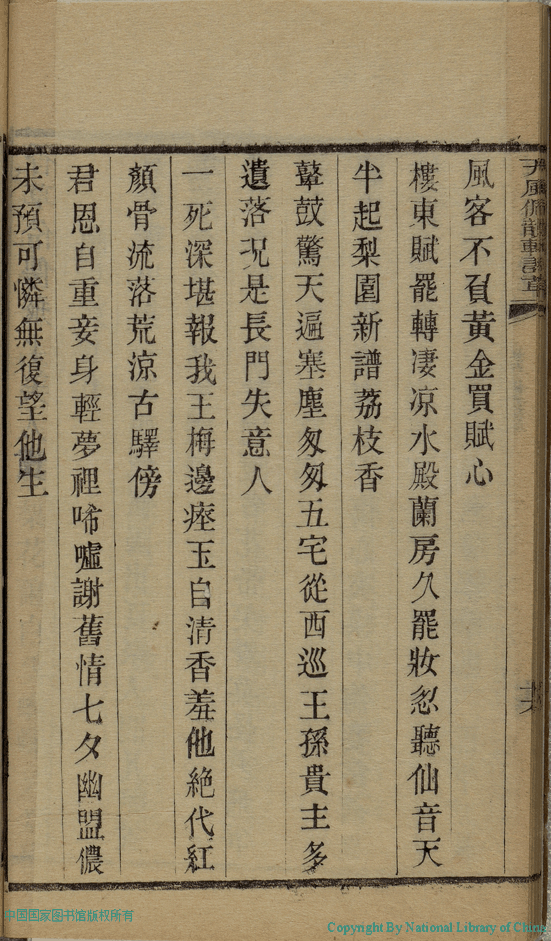 風客不負黃金買賦心
樓東賦罷轉凄凉水殿蘭房久罷妝忽聽仙音天
半起梨園新譜荔枝香
鼙鼓驚天遍塞塵匆匆五宅從西巡王孫貴主多
遺落况是長門失意人
一死深堪報我王梅邊瘞玉自清香羞他絶代紅
顏骨流落荒涼古驛傍
君恩自重妾身輕夢裡唏噓謝舊情七夕幽盟儂
未預可憐無復望他生
中国国家图书馆版权所有
Copyright By National Library of China